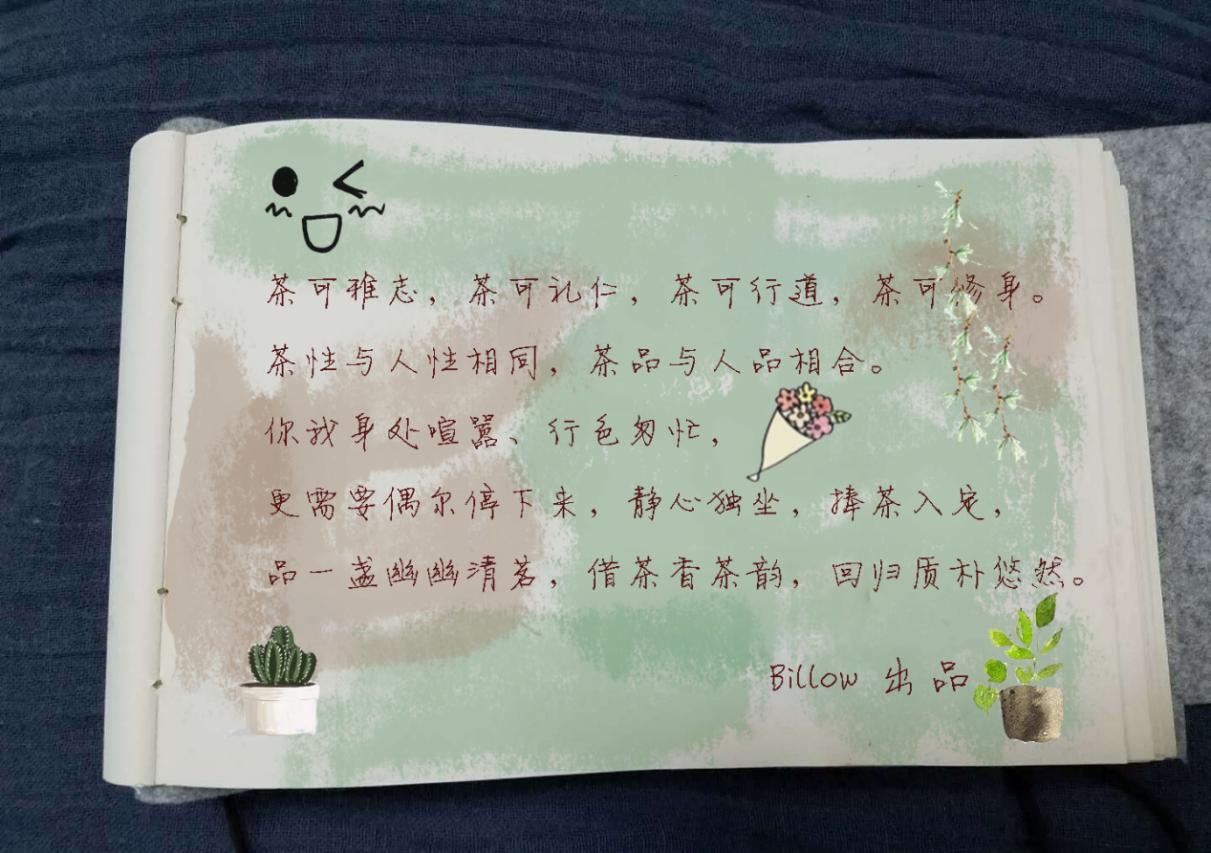 茶可雅志，茶可礼仁，茶可行道，茶可修身。
茶性与人性相同，茶品与人品相合。
你我身处喧嚣、行色匆忙，
更需要偶尔停下来，静心独坐，捧茶入定，
品一盏幽幽清茗，借茶香茶韵，回归质朴悠然。
Billow 出品